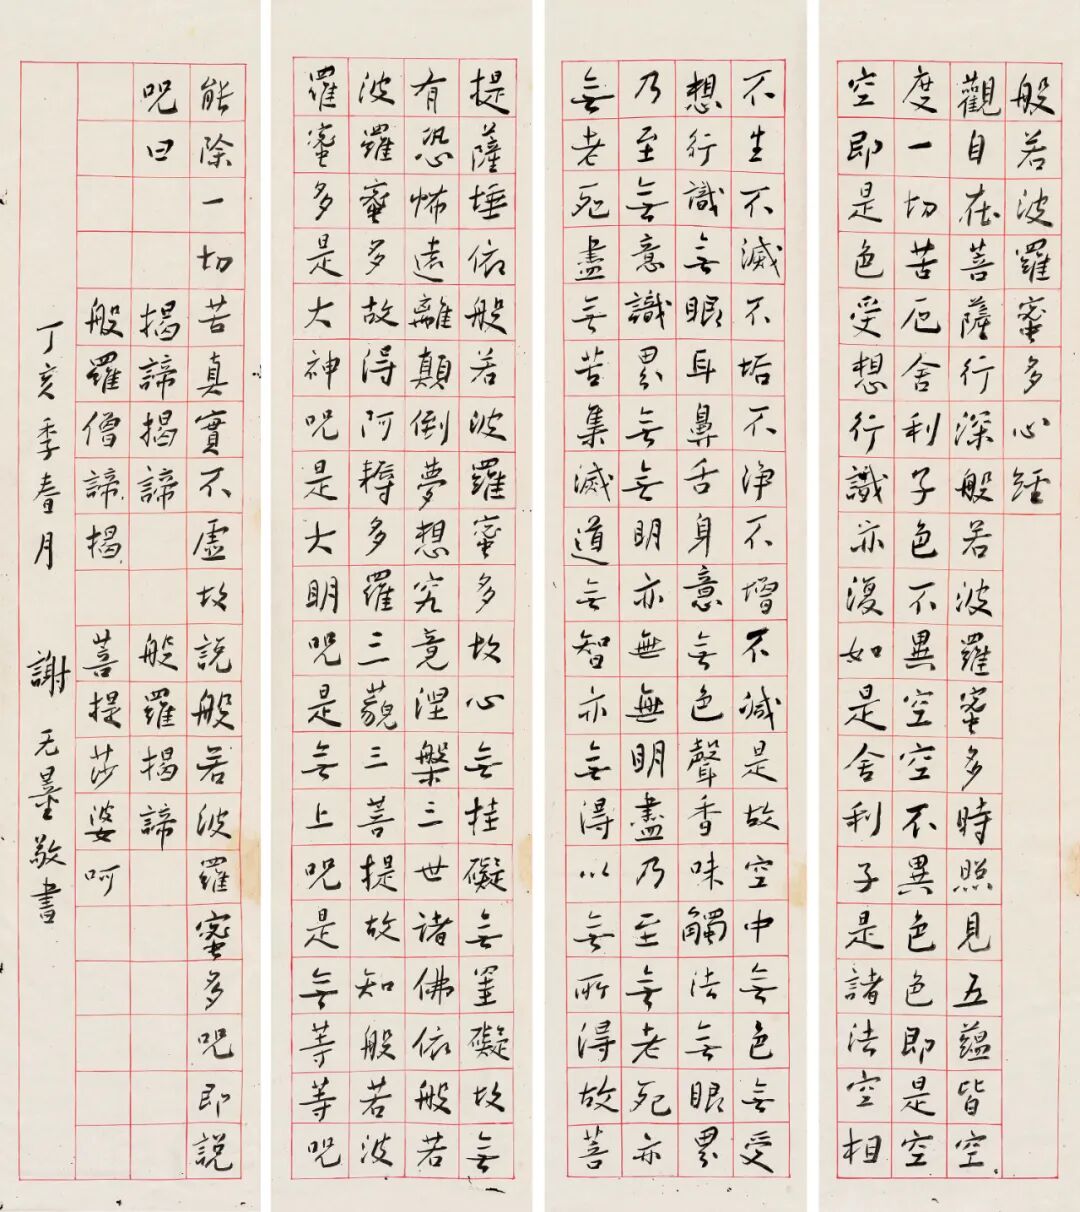 般若波羅蜜多心經
觀自在菩薩行深般若波羅蜜多時照見五蘊皆空
度一切苦厄舍利子色不異空空不異色色即是空
空即是色受想行識亦復如是舍利子是諸法空相
不生不滅不垢不淨不增不減是故空中無色無受
想行識無眼耳鼻舌身意無色聲香味觸法無眼界
乃至無意識界無無明亦無無明盡乃至無老死亦
無老死盡無苦集滅道無智亦無得以無所得故菩
提薩埵依般若波羅蜜多故心無挂礙無罣礙故無
有恐怖遠離顛倒夢想究竟涅槃三世諸佛依般若
波羅蜜多故得阿耨多羅三藐三菩提故知般若波
羅蜜多是大神咒是大明咒是無上咒是無等等咒
能除一切苦真實不虛故說般若波羅蜜多咒即說
咒曰 揭諦揭諦 般羅揭諦
般羅僧諦揭 菩提莎婆呵
丁亥季春月 謝无量敬書